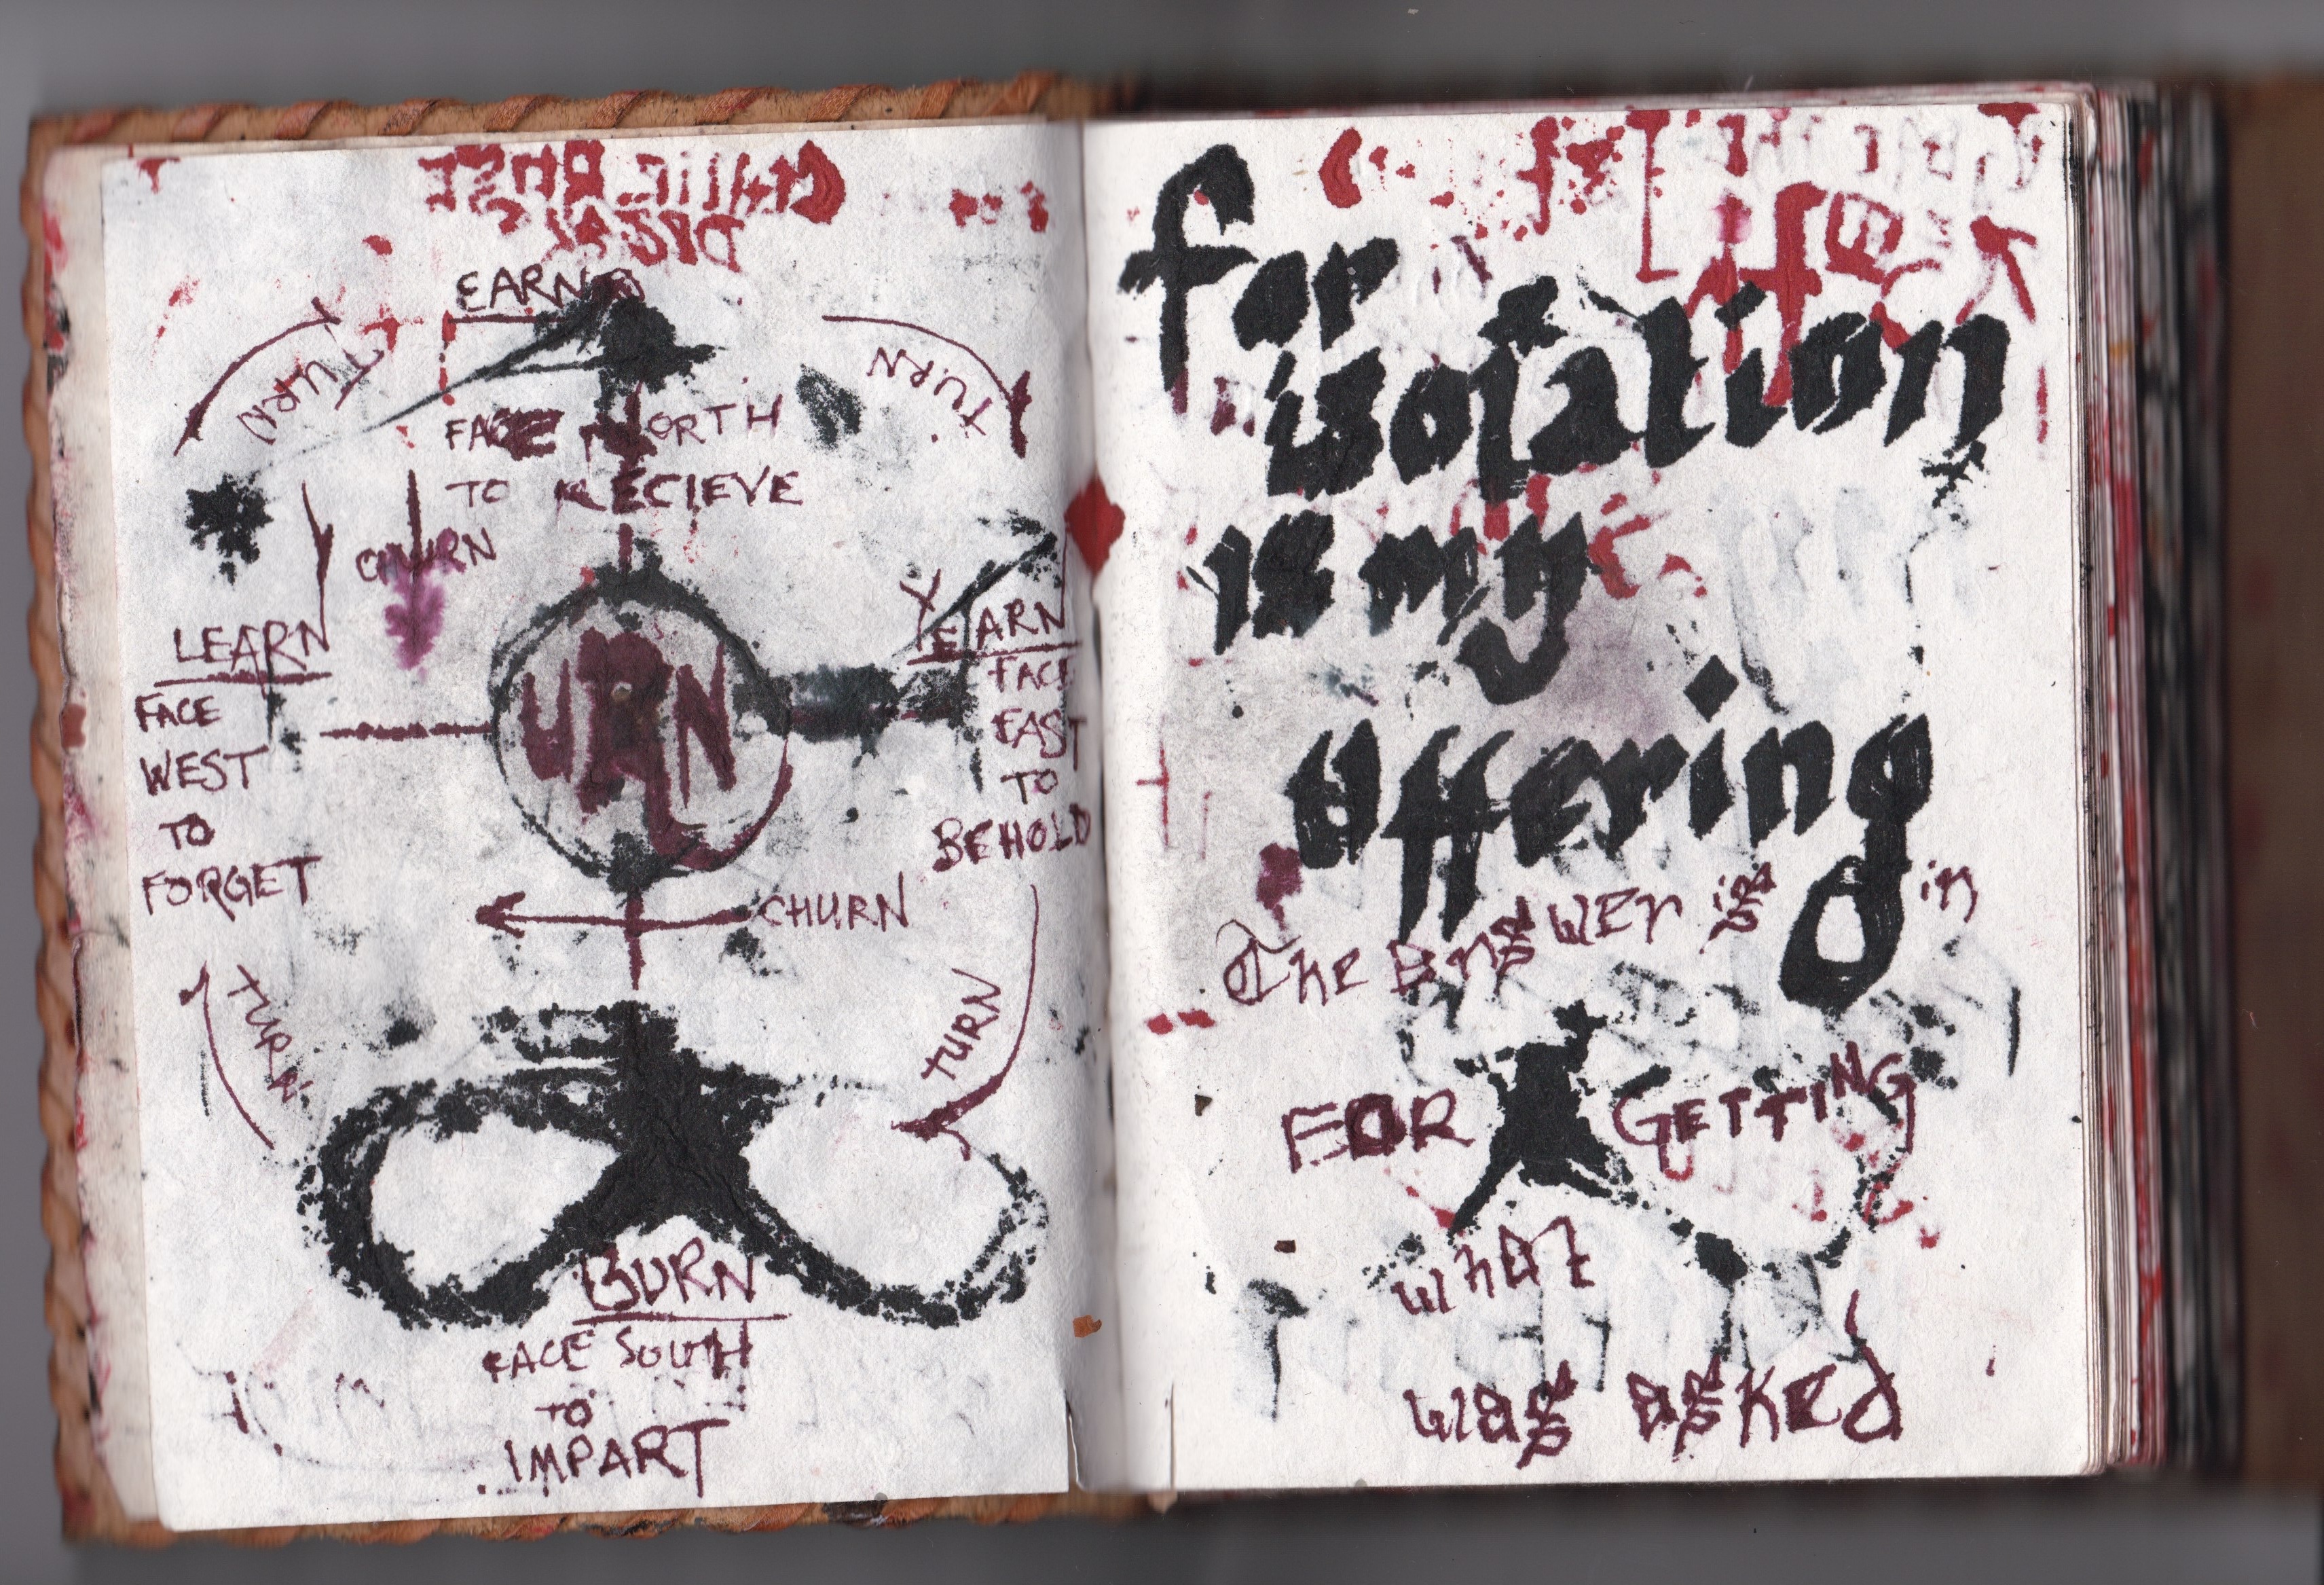 EARN
TURN
TURN
FACE NORTH
TO RECIEVE
CHURN
LEARN
FACE
WEST
TO
FORGET
URN
YEARN
FACE
EAST
TO
BEHOLD
CHURN
TURN
TURN
BURN
FACE SOUTH
TO
IMPART
for
isolation
is my
offering
The answer is in
FOR GETTING
what
was asked